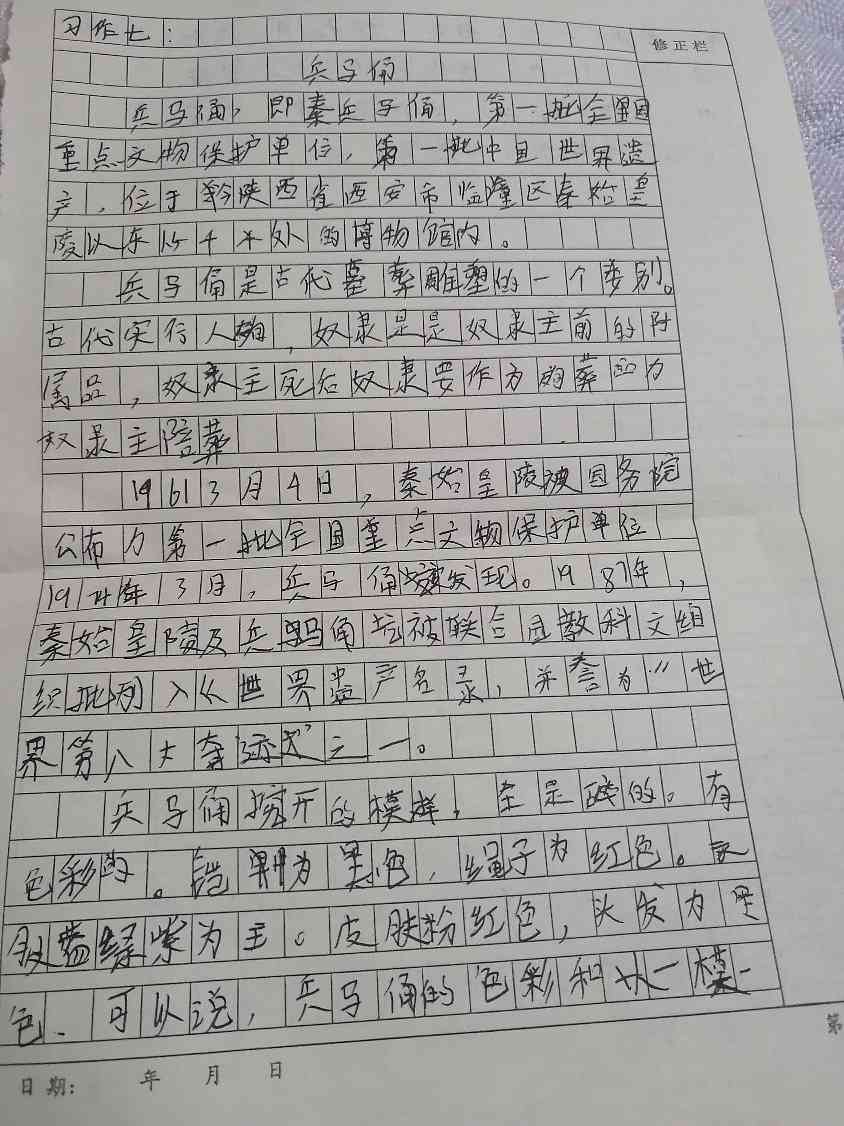 习作七：
修正栏
兵马俑
兵马俑，即秦兵马俑，第一批全国
重点文物保护单位，第一批中国世界遗
产，位于陕西省西安市临潼区秦始皇
陵以东1.5千米处的博物馆内。
兵马俑是古代墓葬雕塑的一个类别。
古代实行人殉，奴隶是是奴隶主前的附
属品，奴隶主死后奴隶要作为殉葬品为
奴隶主陪葬
1961 3月4日，秦始皇陵被国务院
公布为第一批全国重点文物保护单位
1974年3月，兵马俑被发现。1987年，
秦始皇陵及兵马俑坑被联合国教科文组
织批列入《世界遗产名录，并誉为“世
界第八大奇迹”之一。
兵马俑挖开的模样，全是的。有
色彩的。铠甲为黑色，绳子为红色。
蓝绿紫为主。皮肤粉红色，头发为黑
色、可以说，兵马俑的色彩和人一模一
日期： 年 月 日
第